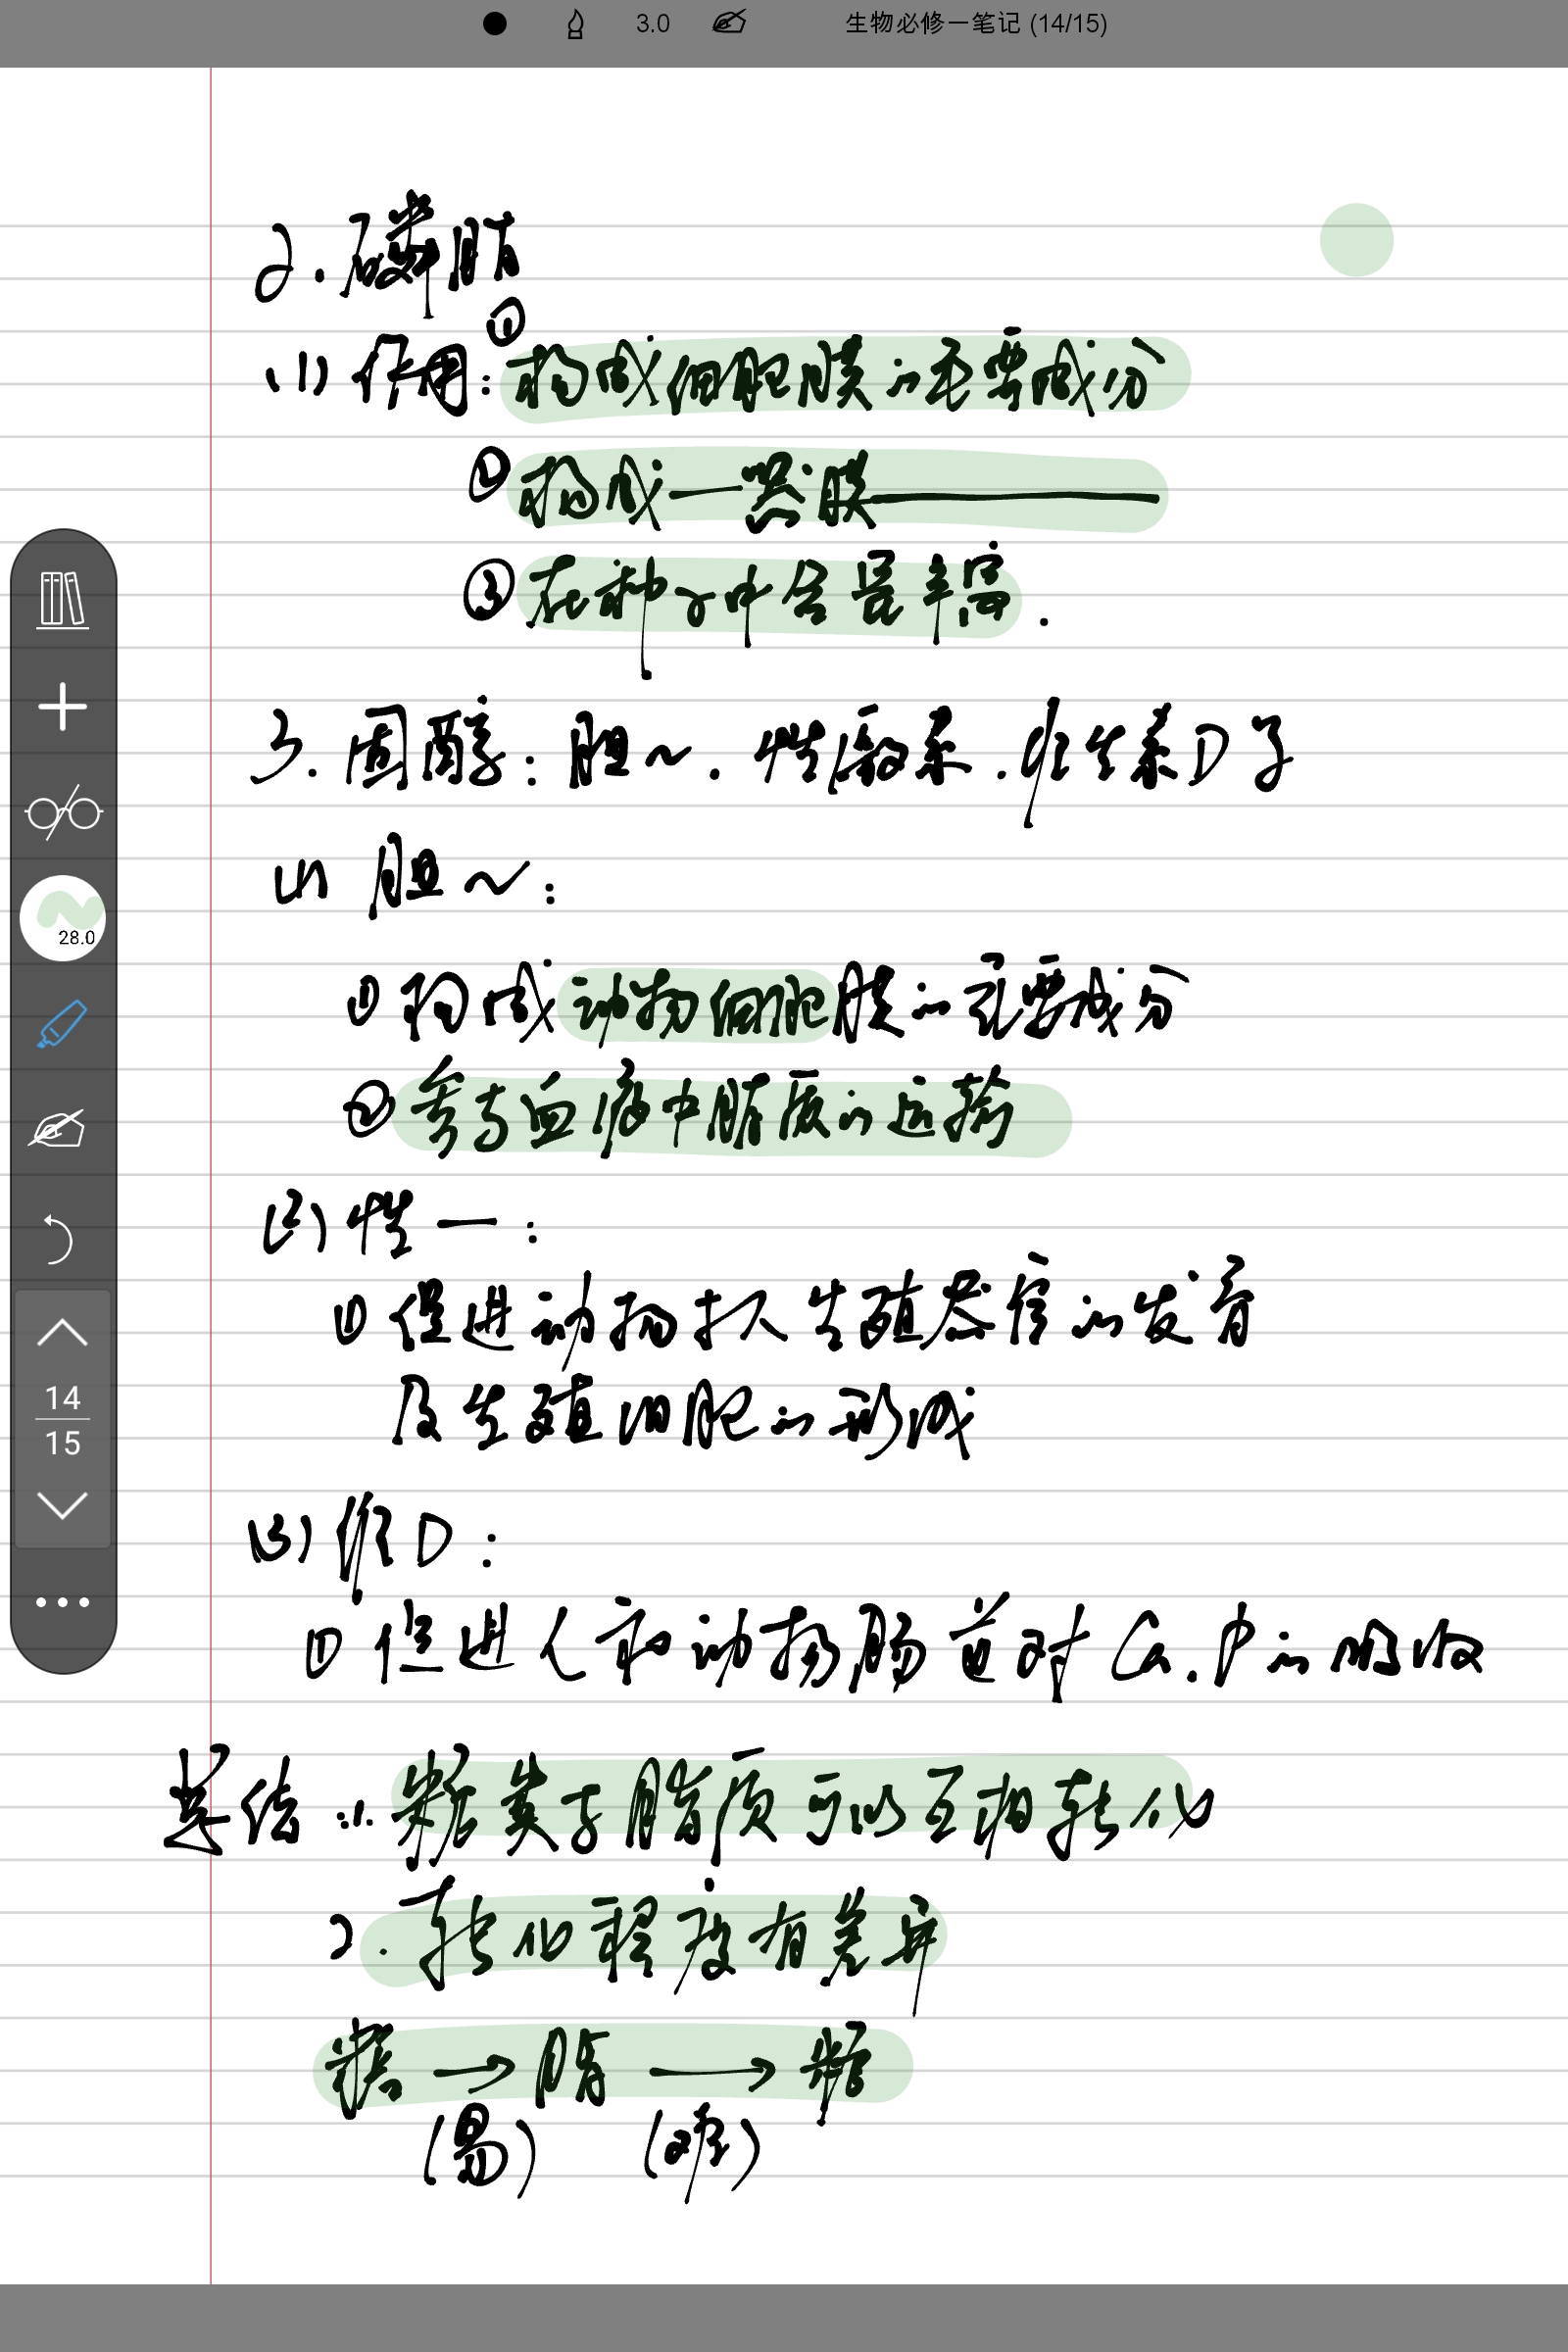 3.0 生物必修一笔记 (14/15)
2.磷脂
(1)作用:①构成细胞膜的重要成分
②构成一器膜——
③在种子中含量丰富.
3.固醇:胆~.性激素.维生素D等
(1)胆~:
①构成动物细胞膜的重要成分
②参与血液中脂质的运输
(2)性一:
①促进动物扒生殖器官的发育
及生殖细胞的形成
(3)维D:
①促进人和动物肠道对Ca.P的吸收
总结:1.糖类与脂质可以互相转化
2.转化程度有差异
糖→脂→糖
(易) (难)
28.0
14
15